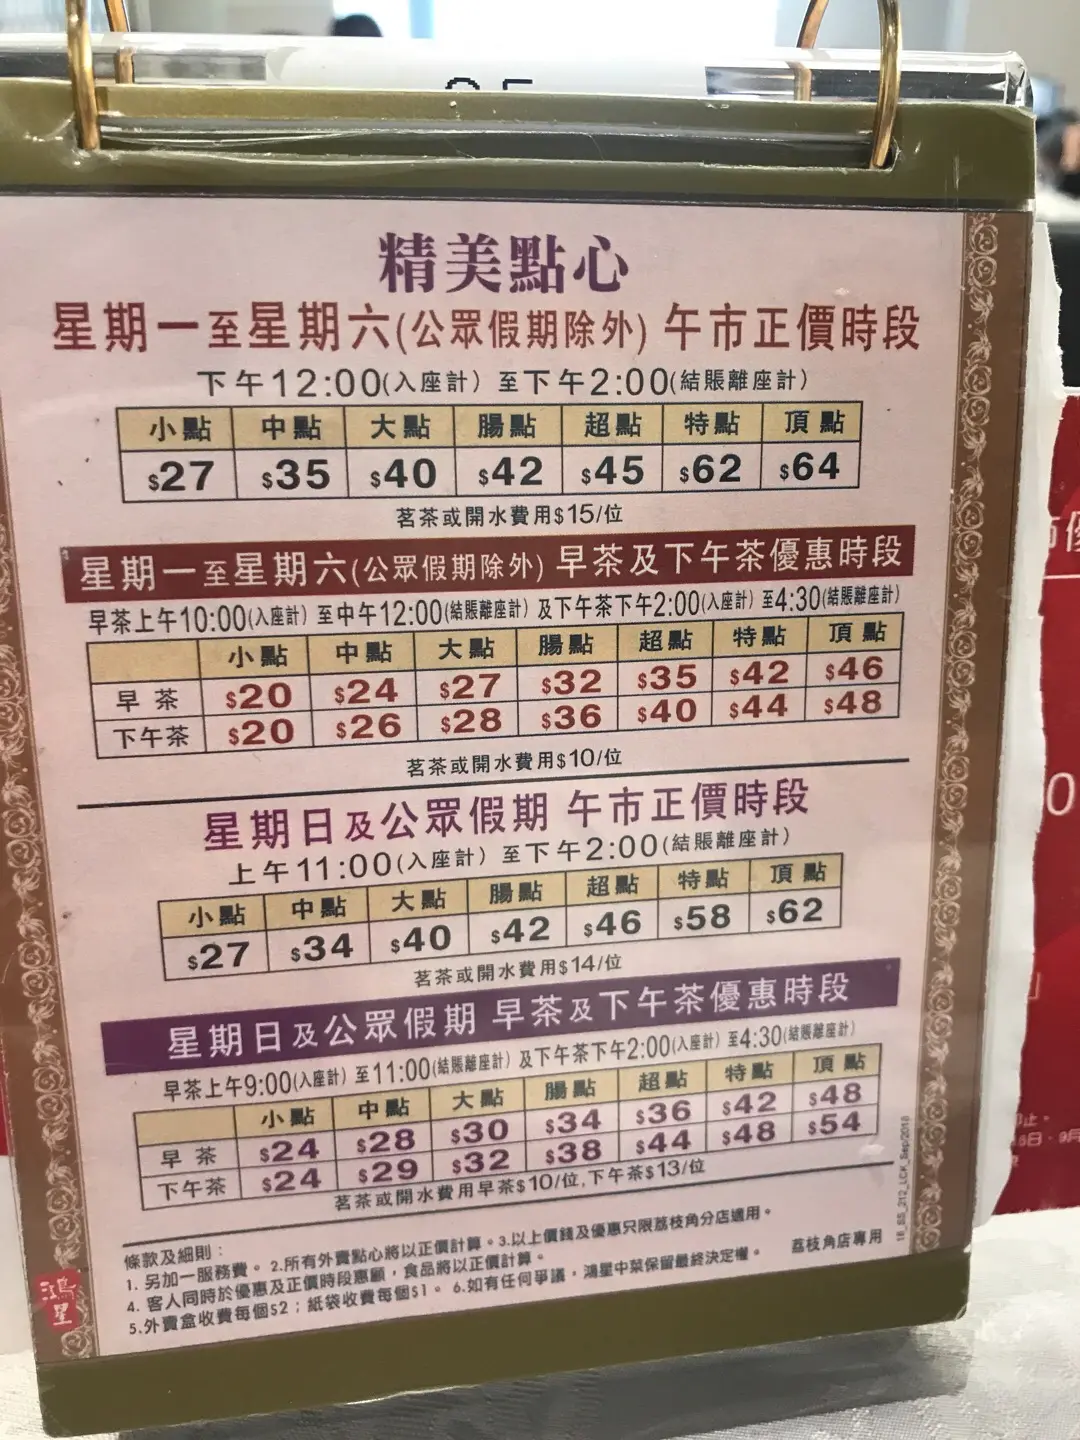 精美點心
星期一至星期六(公眾假期除外) 午市正價時段
下午12:00(入座計) 至下午2:00(結賬離座計)
小點 中點 大點 腸點 超點 特點 頂點
$27 $35 $40 $42 $45 $62 $64
茗茶或開水費用$15/位
星期一至星期六(公眾假期除外) 早茶及下午茶優惠時段
早茶上午10:00(入座計) 至中午12:00(結賬離座計) 及下午茶下午2:00(入座計) 至4:30(結賬離座計)
小點 中點 大點 腸點 超點 特點 頂點
早茶 $20 $24 $27 $32 $35 $42 $46
下午茶 $20 $26 $28 $36 $40 $44 $48
茗茶或開水費用$10/位
星期日及公眾假期 午市正價時段
上午11:00(入座計) 至下午2:00(結賬離座計)
小點 中點 大點 腸點 超點 特點 頂點
$27 $34 $40 $42 $46 $58 $62
茗茶或開水費用$14/位
星期日及公眾假期 早茶及下午茶優惠時段
早茶上午9:00(入座計) 至11:00(結賬離座計) 及下午茶下午2:00(入座計) 至4:30(結賬離座計)
小點 中點 大點 腸點 超點 特點 頂點
早茶 $24 $28 $30 $34 $36 $42 $48
下午茶 $24 $29 $32 $38 $44 $48 $54
茗茶或開水費用早茶$10/位,下午茶$13/位
條款及細則：
1. 另加一服務費。 2.所有外賣點心將以正價計算。3.以上價錢及優惠只限荔枝角分店適用。
4. 客人同時於優惠及正價時段惠顧，食品將以正價計算。
5.外賣盒收費每個$2；紙袋收費每個$1。 6.如有任何爭議，鴻星中菜保留最終決定權。
荔枝角店專用
鴻星